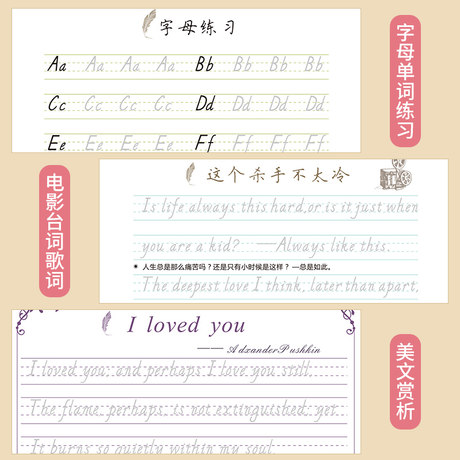 字母练习
字母单词练习
Aa Aa Aa Aa Bb Bb Bb Bb
Cc Cc Cc Cc Dd Dd Dd Dd
Ee Ee Ee Ee Ff Ff Ff Ff
电影台词歌词
这个杀手不太冷
Is life always this hard,or is it just when
you are a kid? —Always like this.
* 人生总是那么痛苦吗？还是只有小时候是这样？ —总是如此。
The deepest love I think, later than apart,
美文赏析
I loved you
—— AdxanderPushkin
I loved you; and perhaps I love you still,
The flame, perhaps, is not extinguished; yet
It burns so quietly within my soul,